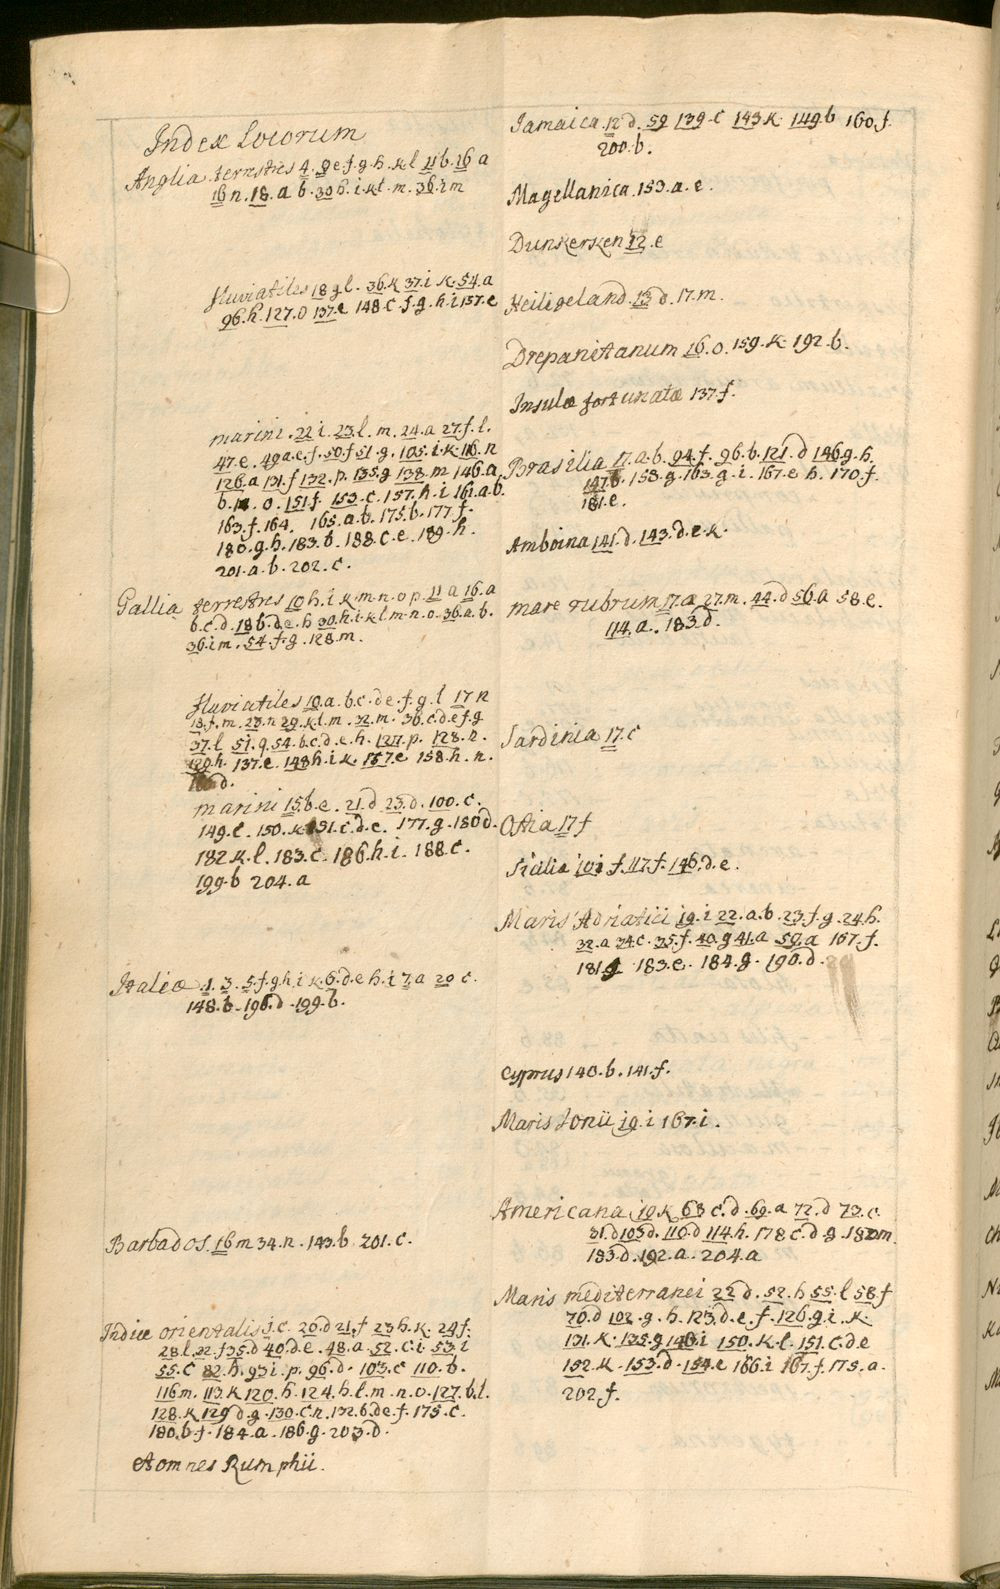 Index Locorum
Anglia terrestres 4. 9 e.f.g.h.k l 11 b. 16 a
16 n. 18. a b. 30 h. i. k l. m. 36. i m
fluviatiles 18 g l. 36. k 37. i k. 54. a
96. h. 127. o 137. e 148. c. f. g. h. i 157. e
marini. 22 i. 23. l. m. 24. a 27. f. l.
47. e. 49 a. e. f. 50. f 51. g. 105. i. k. 116. n
126. a 131. f 132. p. 135. g 138. m 146. a.
b. o. 151. f. 153. c. 157. h. i 161. a. b.
163. f. 164. 165. a. b. 175. b. 177. f.
180. g. h. 183. b. 188. c. e. 189. h.
201. a. b. 202. c.
Gallia terrestris 10 h. i k. m. n. o p. 11 a 16. a
b. c. d. 18 b. d. e. h 30. h. i. k l m. n. o. 36. a. b.
36. i m. 54. f. g. 128. m.
fluviatiles 10. a. b. c. d e. f. g. l 17 n
18. f. m. 28. n 29. k l. m. 32. m. 36. c. d. e f. g
37. l 51. q. 54. b. c. d. e. h. 127. p. 128. n.
129. h. 137. e. 148 h. i k. 157. e 158. h. n.
d.
marini 15. b. e. 21. d 23. d. 100. c.
149. c. 150. k 151. c. d. e. 177. g. 180 d.
182 k. l. 183. c. 186. h. i. 188. c.
199. b 204. a
Italiæ. 1. 3. 5. f. g h. i k. 6. d. e h. i 7. a 20 c.
148. b. 196. d. 199. b.
Barbados. 16 m 34. n. 143. b. 201. c.
Indiæ orientalis 1. c. 20. d 21. f 23 h. k. 24 f.
28. l. 32. f 35. d 40. d. e. 48. a. 52. c. i. 53. i
55. c 82. h. 93 i. p. 96. d. 103. c 110. b.
116 m. 113. k 120. h. 124. h. l. m. n. o. 127. b. l.
128. k 129 d. g. 130. c. n. 132. b. d e. f. 175. c.
180. b. f. 184. a. 186. g. 203. d.
et omnes Rumphii.
Jamaica. 12 d. 59 139. c 143 k. 149 b 160. f.
200. b.
Magellanica. 153. a. e.
Dunkerken 12. e
Heiligeland. 13 d. 17. m.
Drepanitanum 16. o. 159. k. 192. b.
Insulæ fortunatæ 137. f.
Brasilia 17. a. b. 94. f. 96. b. 121. d 146. g. h.
147. b. 158. g. 163. g. i. 167. e h. 170. f.
181. e.
Amboina 141. d. 143. d. e. k.
mare rubrum 17. a 27. m. 44. d 56. a 58. e.
114. a. 183. d.
Sardinia 17. c
Asia 17 f
Sicilia 10 i f. 117. f. 146. d. e.
Maris Adriatici 19. i 22. a. b. 23. f. g. 24. h.
32. a 34. c. 35. f. 40. g 41. a 59. a 167. f.
181. g 183. e. 184. g. 190. d.
Cyprus 140. b. 141. f.
Maris Jonii 19. i 167. i.
Americana 19 k 68 c. d. 69. a 72. d 73. c.
81. d 105 d. 110. d 114. h. 178 c. d g. 182 m
183. d. 192. a. 204. a
Maris mediterranei 22 d. 52. h 55. l 58. f
70. d 102. g. h. 123. d. e. f. 126. g. i. k.
131. k. 135. g 140. i 150. k. l. 151. c. d. e
152. k. 153. d. 154. e 166. i 167. f. 175. a.
202. f.